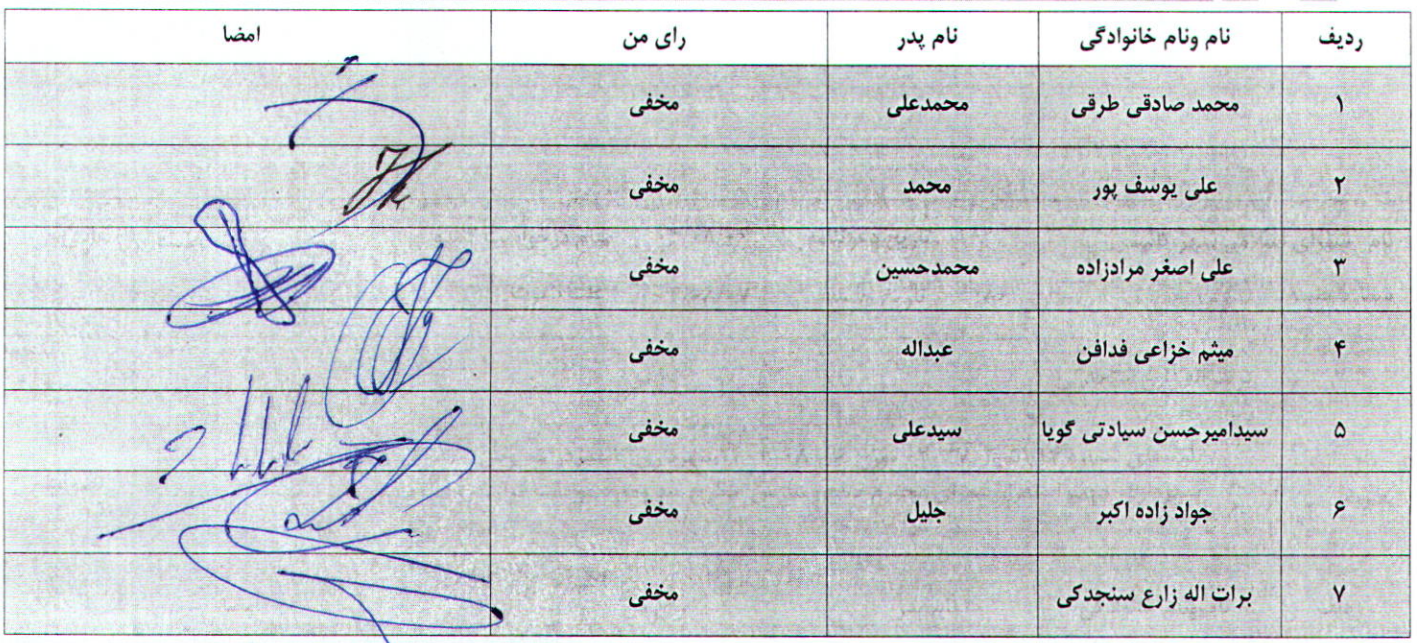 ردیف نام ونام خانوادگی نام پدر رای من امضا
۱ محمد صادقی طرقی محمدعلی مخفی
۲ علی یوسف پور محمد مخفی
۳ علی اصغر مرادزاده محمدحسین مخفی
۴ میثم خزاعی فدافن عبداله مخفی
۵ سیدامیرحسن سیادتی گویا سیدعلی مخفی
۶ جواد زاده اکبر جلیل مخفی
۷ برات اله زارع سنجدکی مخفی